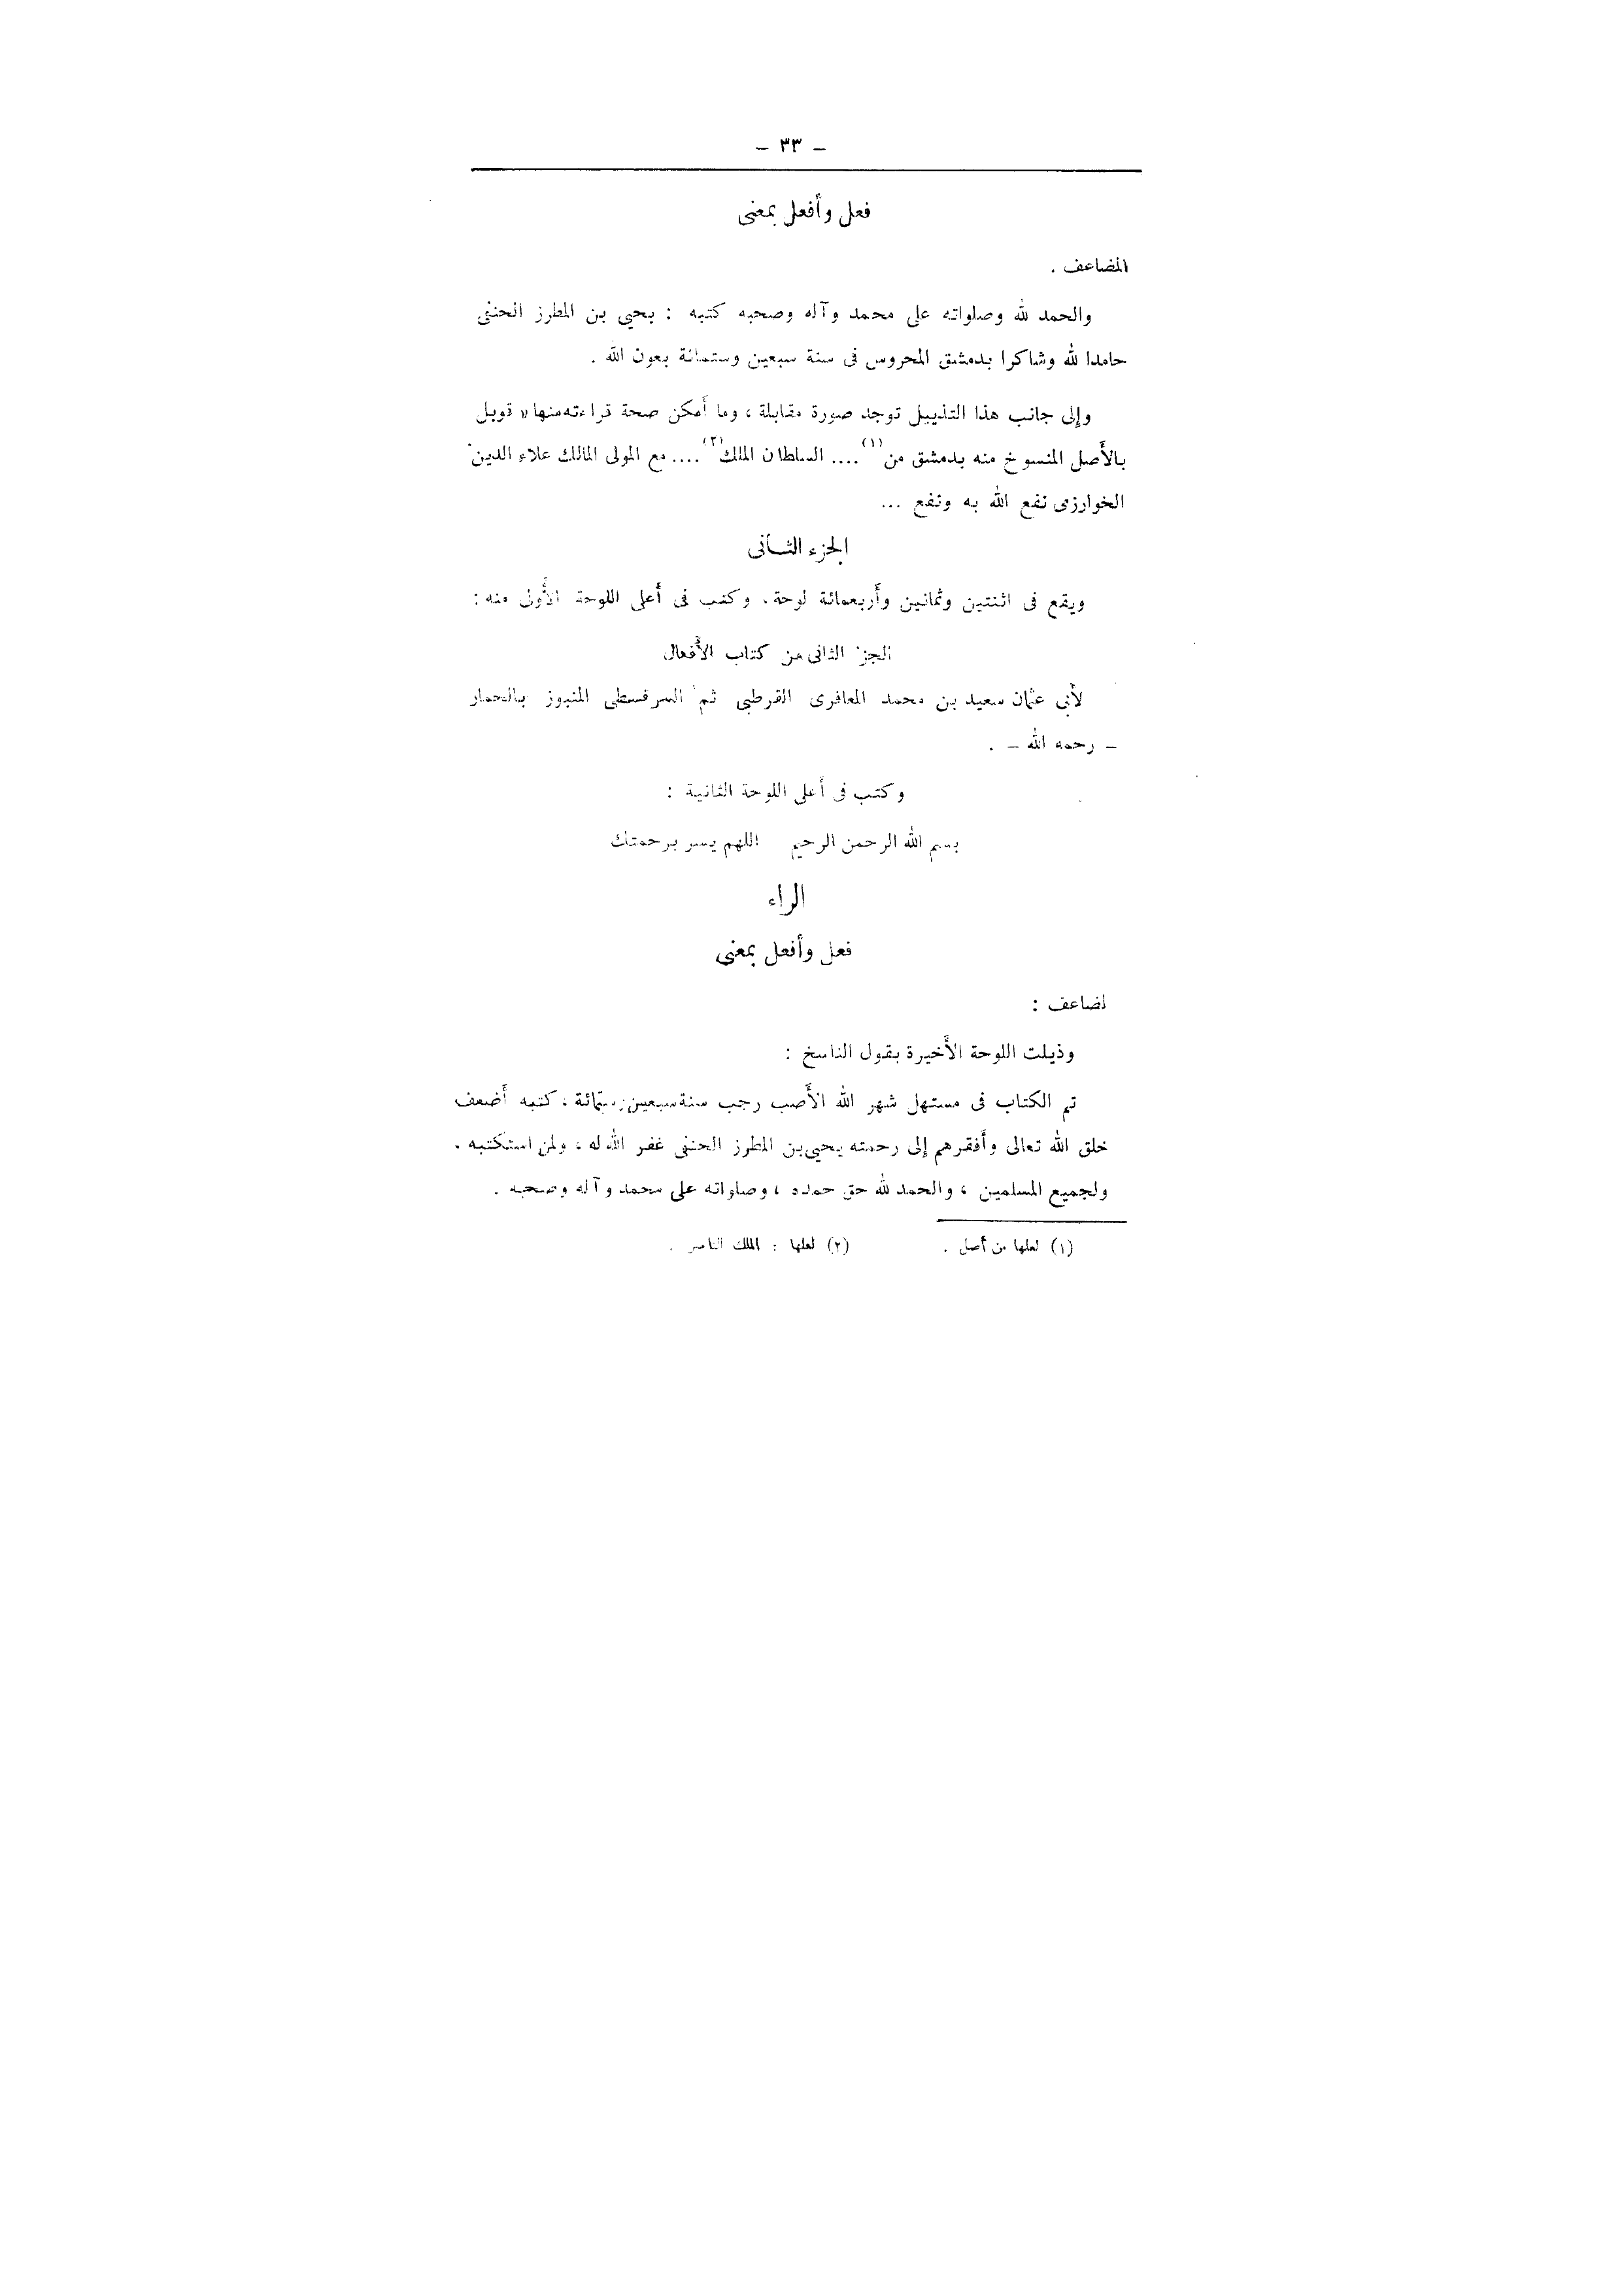 – ٣٣ –
فعل وأفعل بمعنى
المضاعف .
والحمد لله وصلواته على محمد وآله وصحبه كتبه : يحيى بن المطرز الحنفى
حامدا لله وشاكرا بدمشق المحروس فى سنة سبعين وستمائة بعون الله .
وإلى جانب هذا التذييل توجد صورة مقابلة ، وما أمكن صحة قراءته منها « قوبل
بالأصل المنسوخ منه بدمشق من (١) .... السلطان الملك (٢) .... مع المولى المالك علاء الدين
الخوارزمى نفع الله به ونفع ...
الجزء الثانى
ويقع فى اثنتين وثمانين وأربعمائة لوحة ، وكتب فى أعلى اللوحة الأولى منه :
الجزء الثانى من كتاب الأفعال
لأبى عثمان سعيد بن محمد المعافرى القرطبى ثم السرقسطى المنبوز بالحمار
– رحمه الله – .
وكتب فى أعلى اللوحة الثانية :
بسم الله الرحمن الرحيم اللهم يسر برحمتك
الراء
فعل وأفعل بمعنى
لضاعف :
وذيلت اللوحة الأخيرة بقول الناسخ :
تم الكتاب فى مستهل شهر الله الأصب رجب سنة سبعين وستمائة ، كتبه أضعف
خلق الله تعالى وأفقرهم إلى رحمته يحيى بن المطرز الحنفى غفر الله له ، ولمن استكتبه .
ولجميع المسلمين ، والحمد لله حق حمده ، وصلواته على محمد وآله وصحبه .
(١) لعلها من أصل . (٢) لعلها : الملك الناصر .